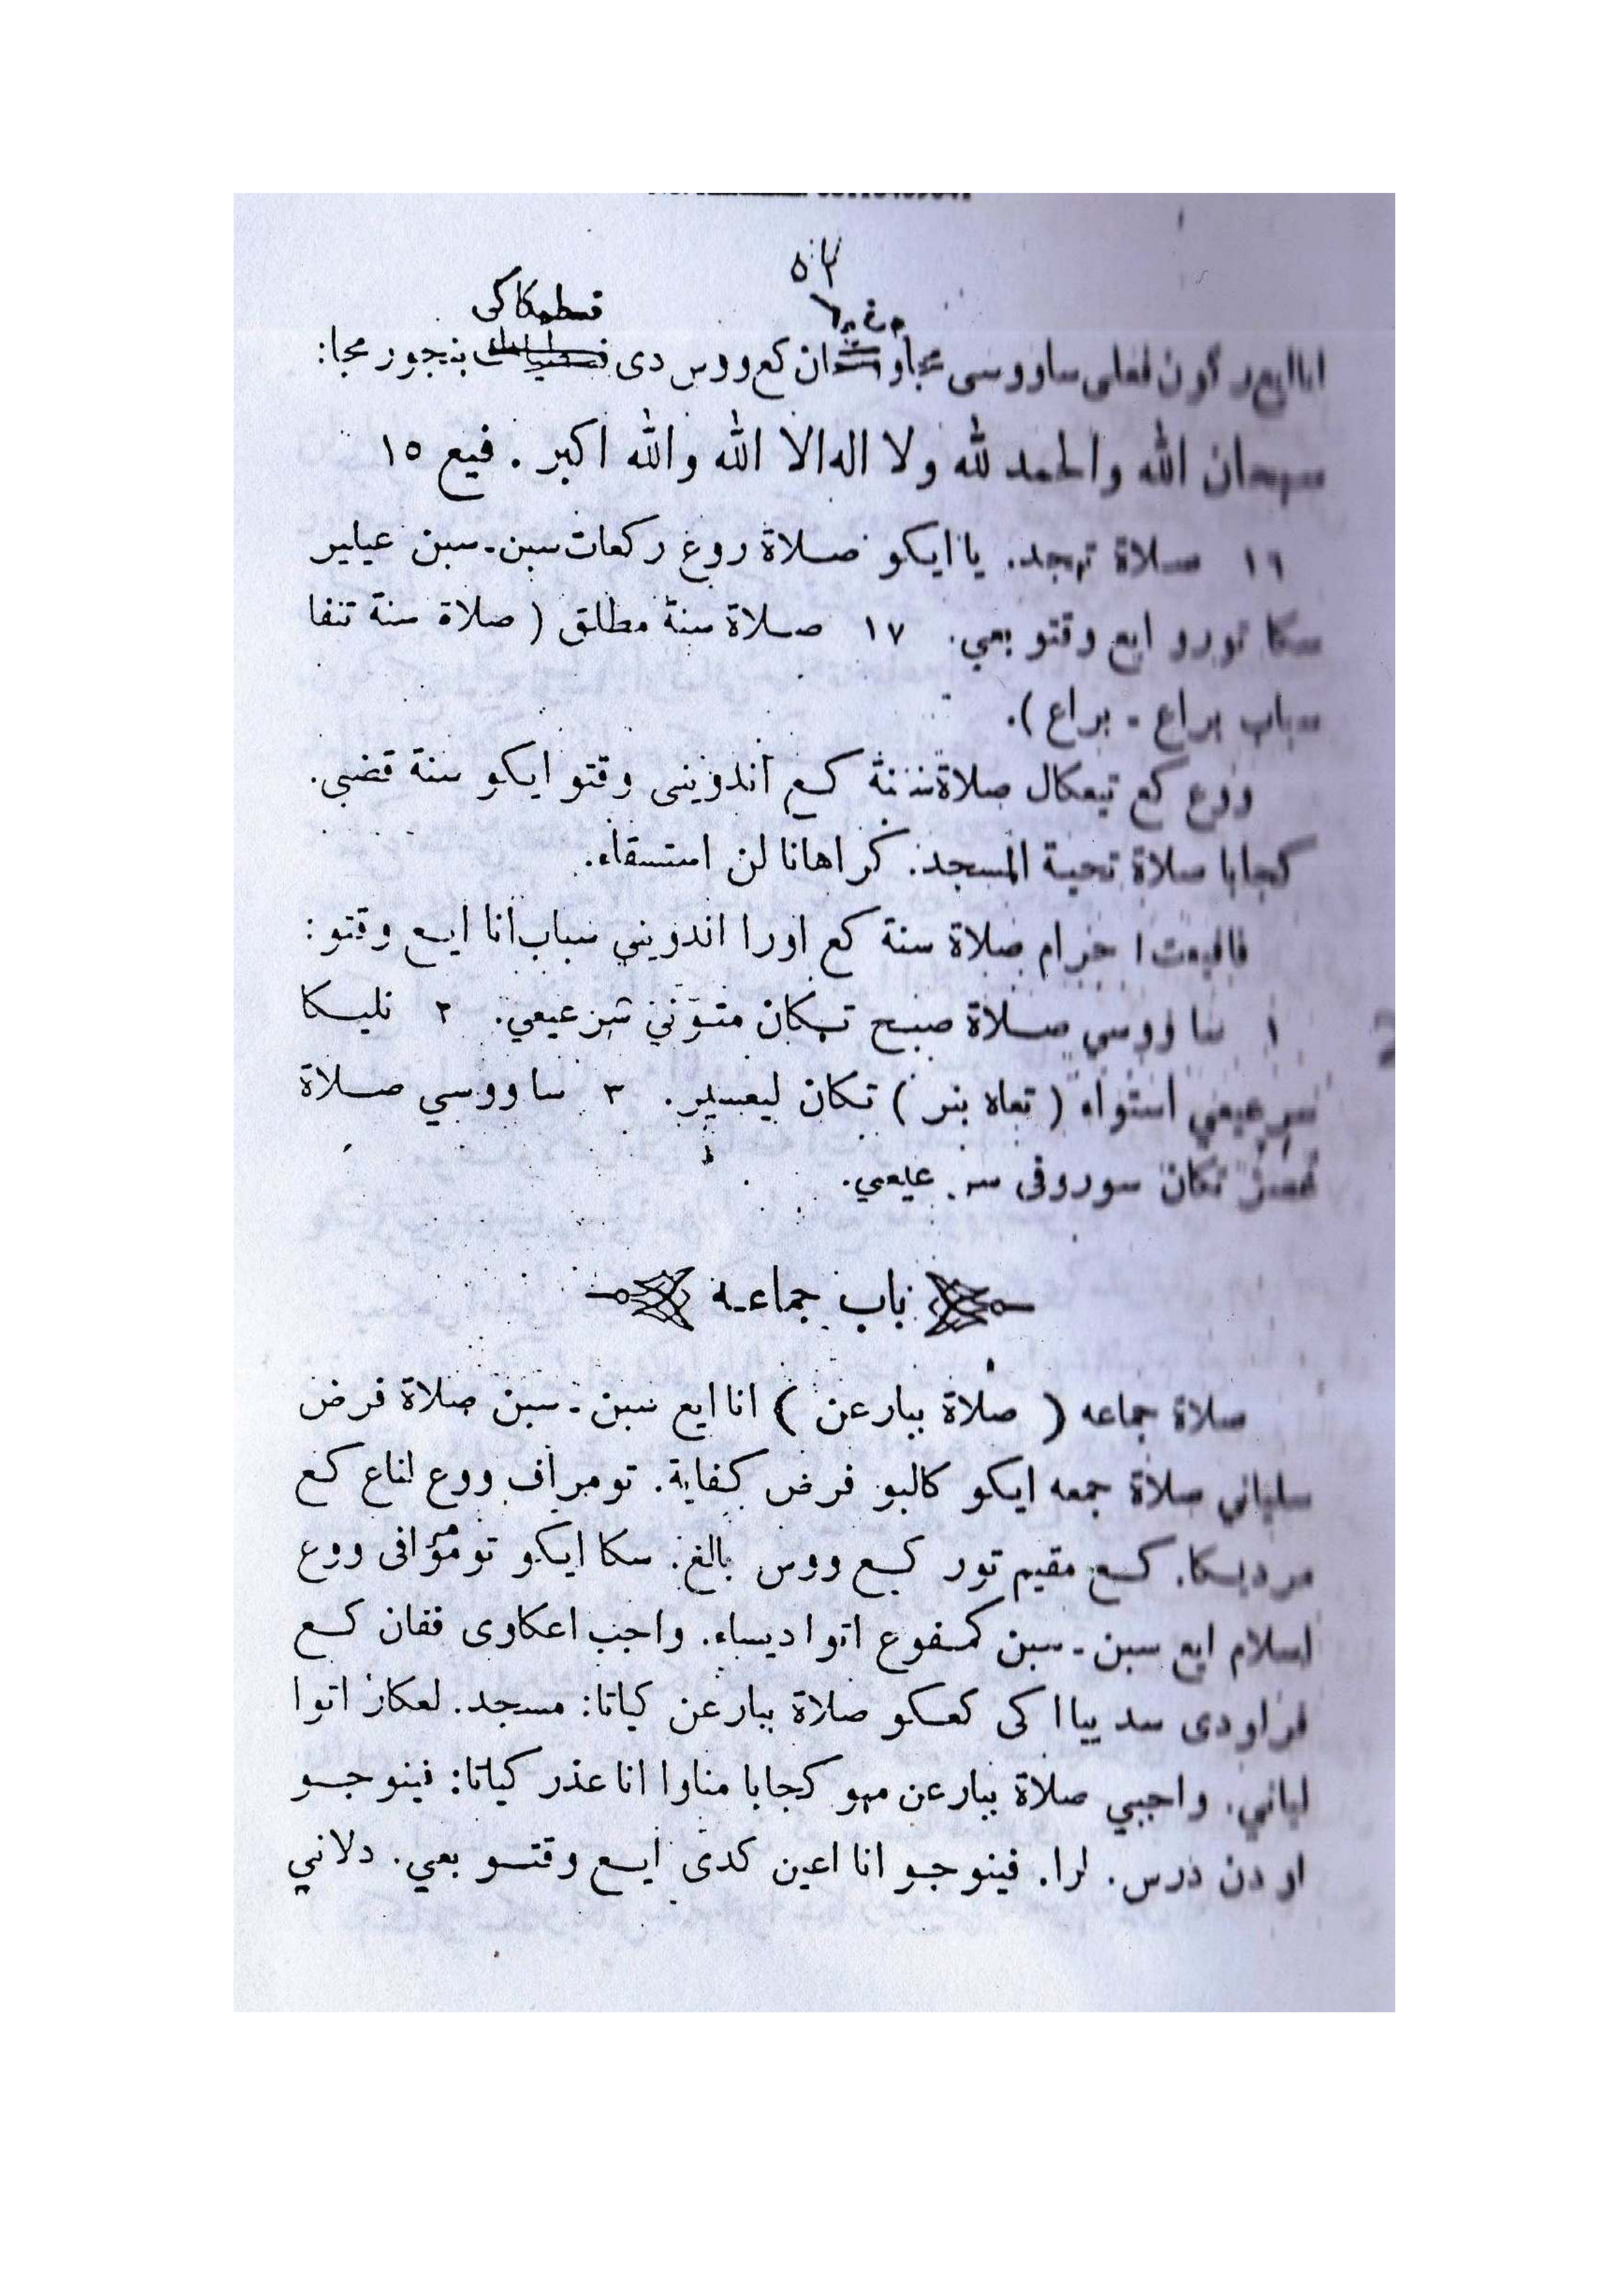 ٥٣
قسطهكاكى
انا ايع ركون ففلى ساووسى مجا ان كع ووس دى بنجور مجا:
سبحان الله والحمد لله ولا اله الا الله والله اكبر. فيع ١٥
١٦ صلاة تهجد. يا ايكو صلاة روع ركعات سبن-سبن عيلير
سكا تورو ايع وقتو بعي. ١٧ صلاة سنة مطلق (صلاة سنة تنفا
سباب براع - براع).
ووع كع تيعكال صلاة سنة كع اندويني وقتو ايكو سنة قضى.
كجابا صلاة تحية المسجد. كراهانا لن استسقاء.
فاقيعت ا حرام صلاة سنة كع اورا اندويني سباب انا ايع وقتو:
١ سا ووسي صلاة صبح تكان متوني سرعيعي. ٢ نليكا
سرعيعي استواء (تعاه بنر) تكان ليعسير. ٣ سا ووسي صلاة
عصر تكان سوروفى سر عيعي.
باب جماعة
صلاة جماعه (صلاة ببارعن) انا ايع سبن-سبن صلاة فرض
سلياني صلاة جمعه ايكو كالبو فرض كفاية. تومراف ووع لناع كع
مرديكا. كع مقيم تور كع ووس بالغ. سكا ايكو تومرافى ووع
اسلام ايع سبن-سبن كمفوع اتوا ديساء. واجب اعكاوى ففان كع
فراودى سدييا اكى كعكو صلاة ببارعن كياتا: مسجد. لعكار اتوا
لياني. واجبي صلاة ببارعن مهو كجابا مناوا انا عذر كياتا: فينوجو
اودن درس. لرا. فينوجو انا اعين كدى ايع وقتو بعي. دلاني